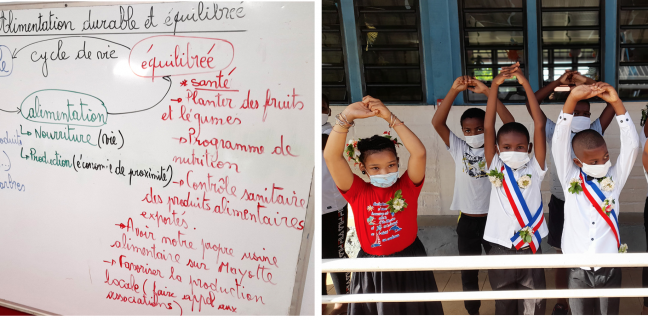 Alimentation durable et équilibrée
cycle de vie
équilibrée
alimentation
Nourriture (vie)
Production (économie de proximité)
* santé
Planter des fruits
et légumes
Programme de
nutrition
Contrôle sanitaire
des produits alimentaires
exportés.
Avoir notre propre usine
alimentaire sur Mayotte
Favoriser la production
locale (faire appel aux
associations)